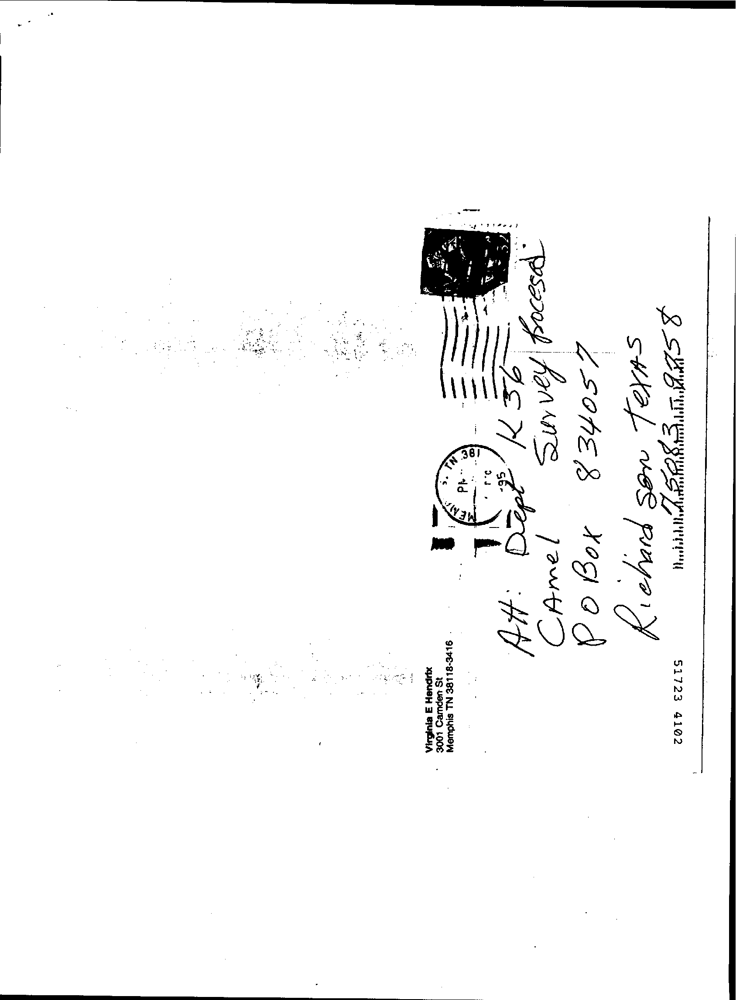 Virginia E Hendrix
3001 Camden St
Memphis TN 38118-3416
TN 381
PM
Att: Dept K36
CAmel Survey Procesed.
PO Box 834057
Richard son TexAS
75083-9958
51723 4102